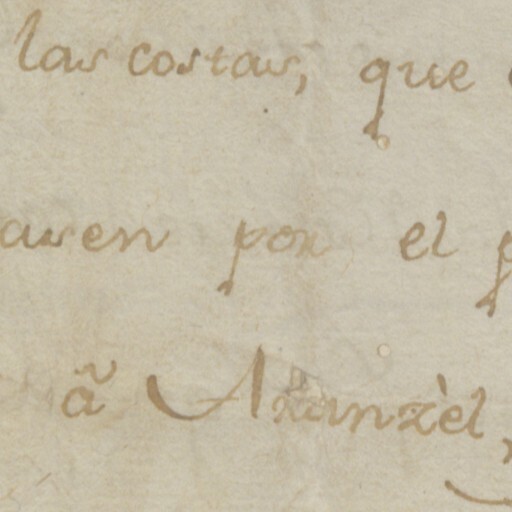 las costas, que
asen por el
ã Aranzèl,